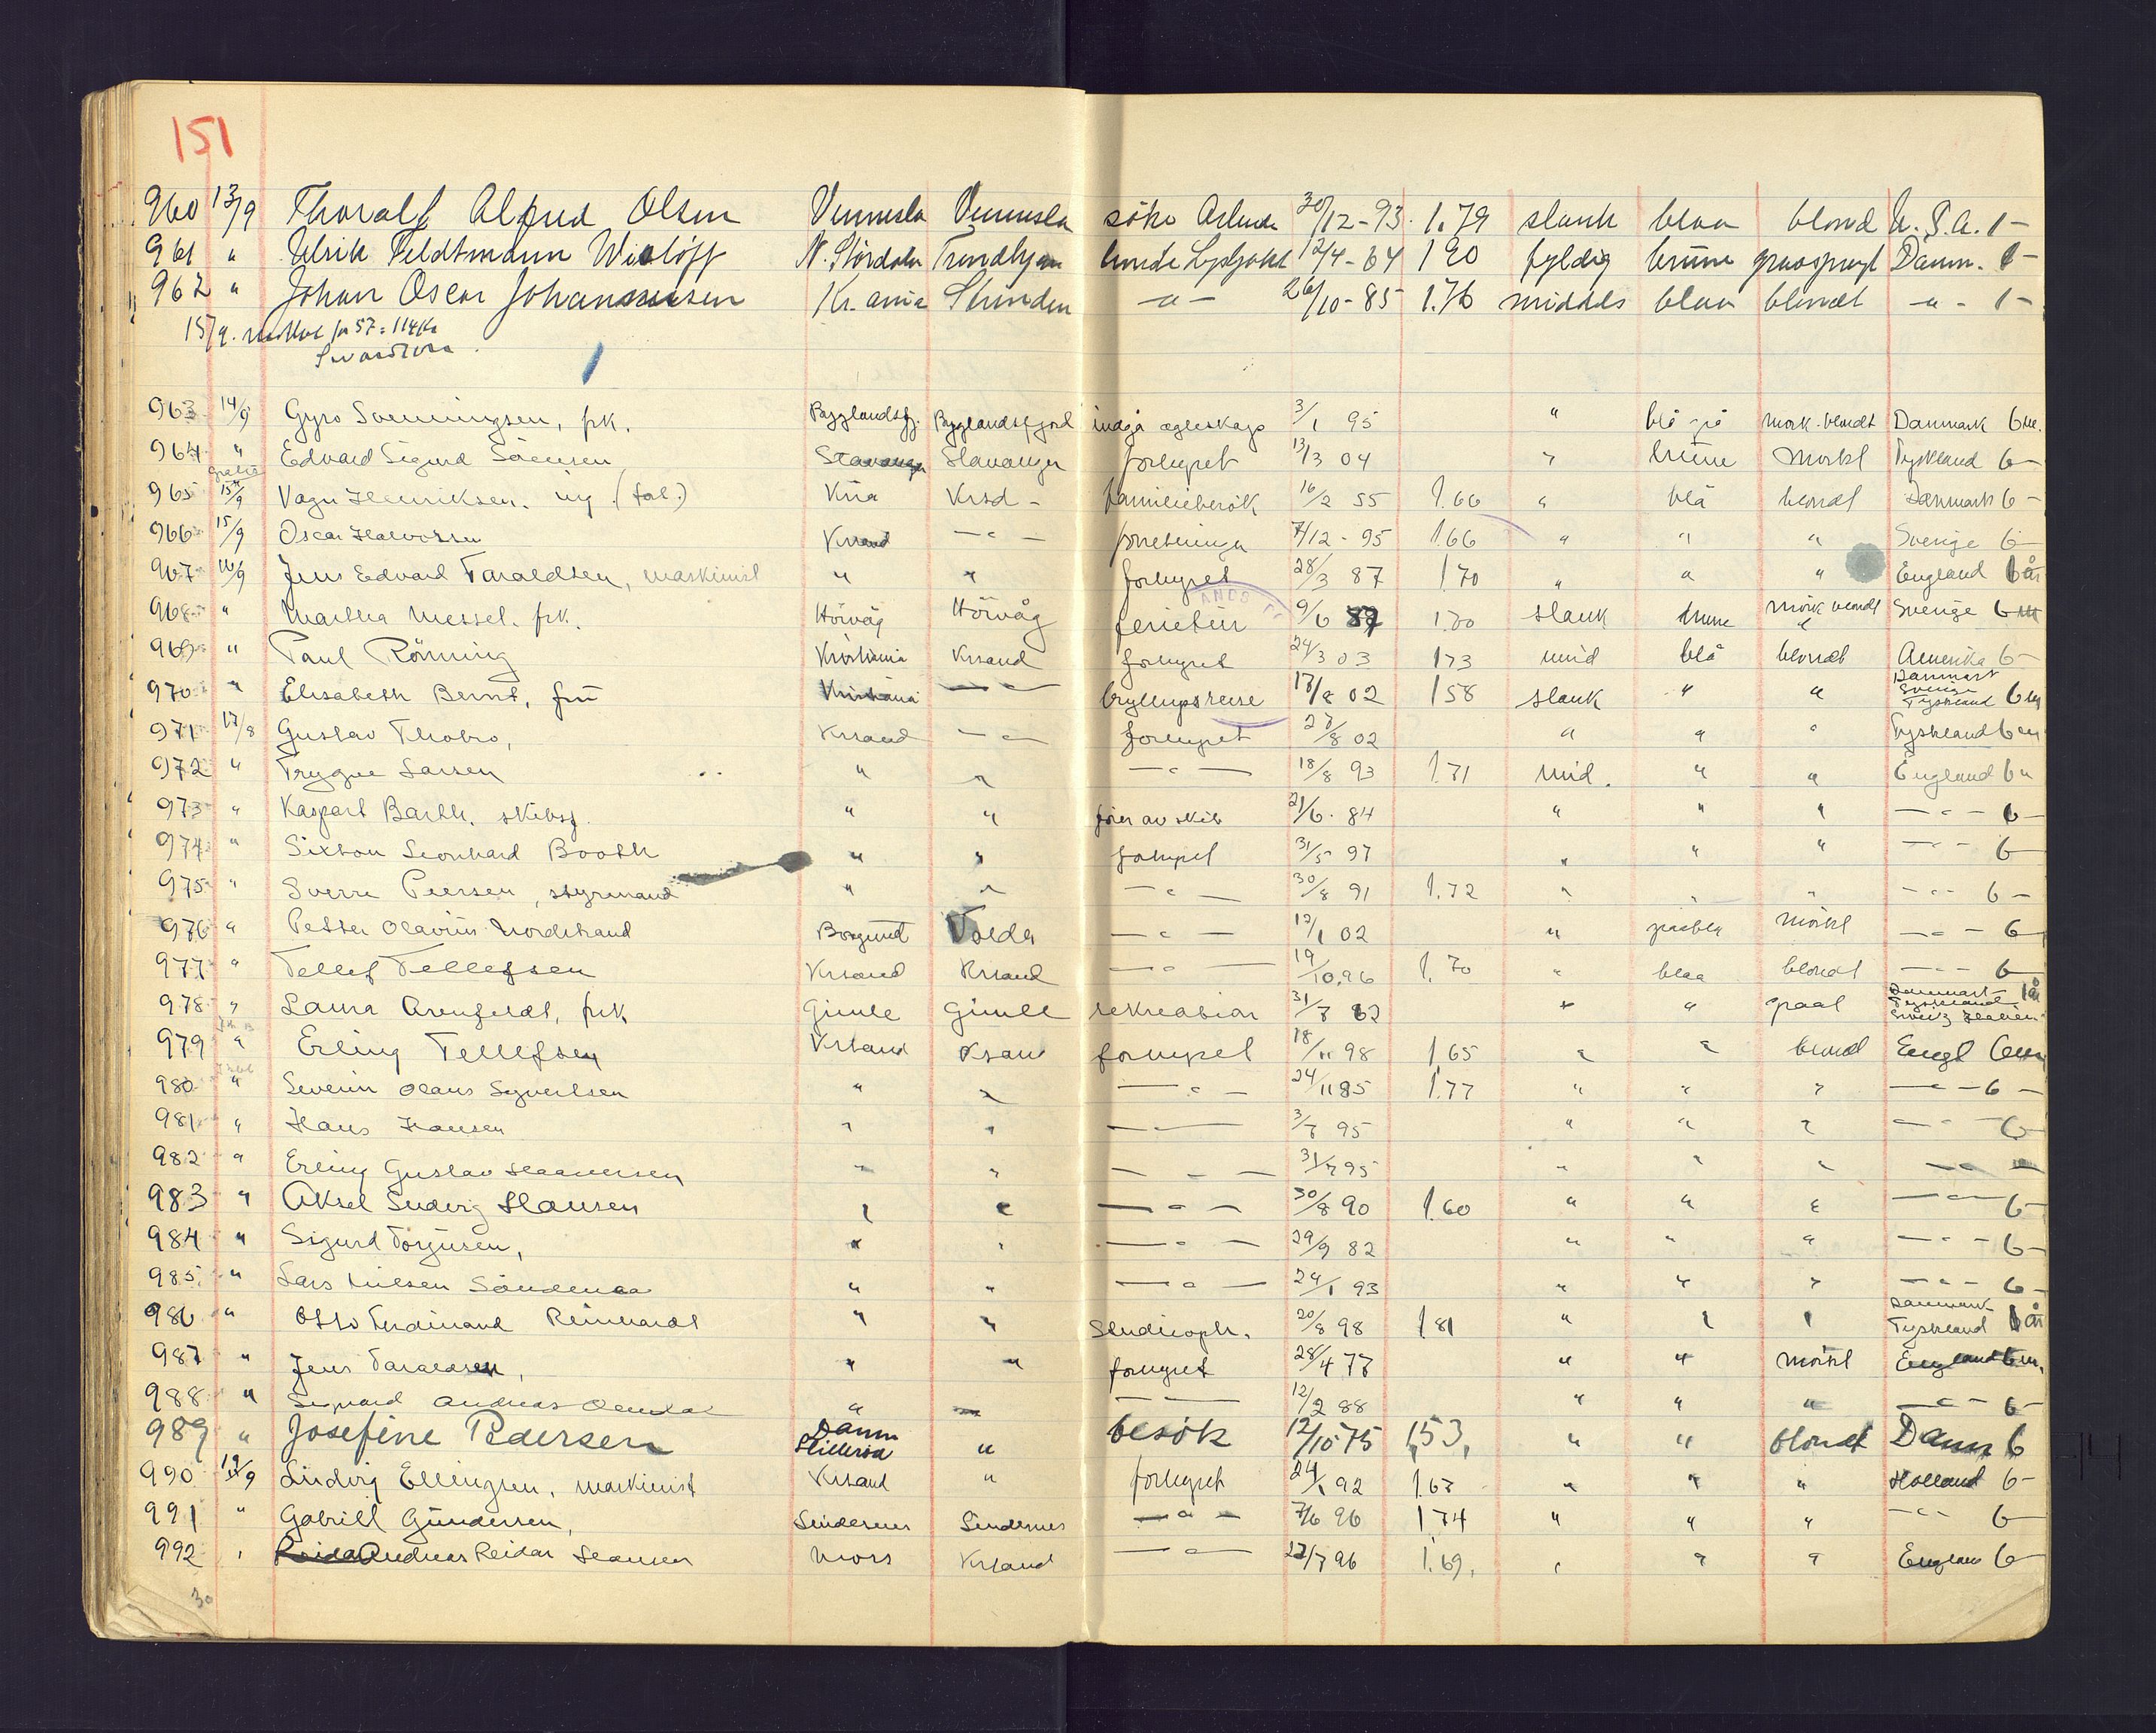 151
960 13/9 Thoralf Alfred Olsen Vennesla Vennesla söke Arbeide 30/12-93. 1.79 slank blaa blond U.S.A. 1 -
961 " Ulrik Feldtmann N. Stördalen Trondhjem 12/4-64 190 fyldig brune Danm. 1 -
962 " Johan Oscar Johannessen Kr.ania Strinden - " - 26/10-85 1.76 middels blaa blondt - " - 1 -
15/9. for 57 = 114 Kr
963 14/9 Gyro Svenningsen, frk. Byglandsfj. Byglandsfjord indgå ægteskap 3/1 95 " blå grå mörk blondt Danmark 6 m.
964 " Edvard Sigurd Sörensen Stavanger Stavanger forhyret 13/3 04 " brune Mörkt Tyskland 6 -
gratis
965 15/9 Vagn Henriksen. ing. Kria Krsd - familiebesök 16/2 55 1.66 " blå blondt Danmark 6 -
966 15/9 Oscar Halvorsen Krsand - " - forretninger 7/12 - 95 1.66 " " " Sverige 6 -
967 16/9 Jens Edvard Taraldsen, maskinist " " forhyret 28/3 87 1.70 " " " England 1 år
968 " Martha Messel. frk. Hörvåg Hövåg ferietur 9/6 89 1.70 slank brune mörk blondt Sverige 6 m
969 " Paul Rönning Kristiania Krsand forhyret 24/3 03 173 mid blå blondt Amerika 6 -
970 " Elisabeth Bernt, fru Kristiania - " - bryllupsreise 17/8 02 158 slank " " Danmark Sverige Tyskland 6 m
971 17/8 Gustav Thobro, Krsand - " - forhyret 27/8 02 " " " Tyskland 6 m
972 " Trygve Larsen " " - " - 18/8 93 1.71 mid. " " England 6 "
973 " Kaspart Barth. skibsf. " " förer av skib 21/6. 84 " " " - " - 6 -
974 " Sixton Leonhard Booth " " forhyret 31/5 97 " " " - " - 6 -
975 " Sverre Peersen, styrmand " " - " - 30/8 91 1.72 " " " - " - 6 -
976 " Petter Olavius Nordstrand Borgund Volda - " - 17/1 02 " gråblå mörkt - " - 6 -
977 " Tellef Tellefsen Krsand Krsand - " - 19/10.96 1.70 " blaa blondt - " - 6 -
978 " Laura Arenfeldt, frk. Gimle Gimle rekreation 31/7 62 " " graat Danmark Tyskland Sveitz Italien 1 år
979 " Erling Tellefsen Krsand Krsand forhyret 18/11 98 1.65 " " blond Engl 6 m
980 " Severin Olaus Syvertsen " " - " - 24/11 85 1.77 " " " - " - 6 -
981 " Hans Hansen " " - " - 3/7 95 " " " - " - 6 -
982 " Erling Gustav " " - " - 31/7 95 " " " - " -
983 " Aksel Ludvig Hansen " " - " - 30/8 90 1.60 " " " - " - 6 -
984 " Sigurd Torjusen, " " - " - 29/9 82 " " " - " - 6 -
985 " Lars Nilsen " " - " - 24/1 93 " " " - " - 6 -
986 " Otto Ferdinand Reinhardt " " studieoph. 20/8 98 1.81 " " " Danmark Tyskland 1 år
987 " Jens Taraldsen, " " forhyret 28/4 77 " " mörkt England 6 m.
988 " Sigvard Andreas " " - " - 12/2 88 " " " - " - 6 -
989 " Josefine Pedersen Danm Hilleröd " besök 12/10 75 1,53, " " blondt Danm 6
990 19/9 Ludvig Ellingsen, maskinist Krsand " forhyret 24/1 92 1.67 " " " Holland 6 -
991 " Gabriel Gundersen, Lindesnes Lindesnes - " - 7/6 96 174 " " " - " - 6 -
992 " Andreas Reidar Hansen Moss Krsand - " - 27/7 96 1.69, " " " England 6 -
30